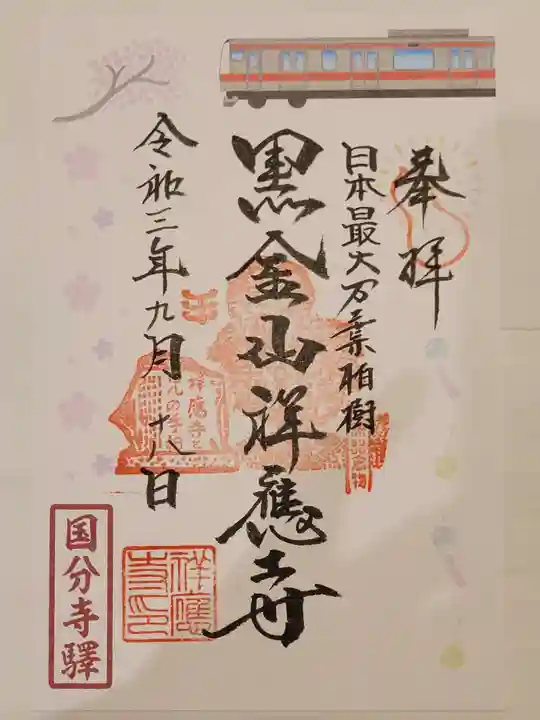 奉拝
日本最大万葉柏樹
黒金山祥應寺
令和三年九月十八日
祥應
寺印
国分寺驛